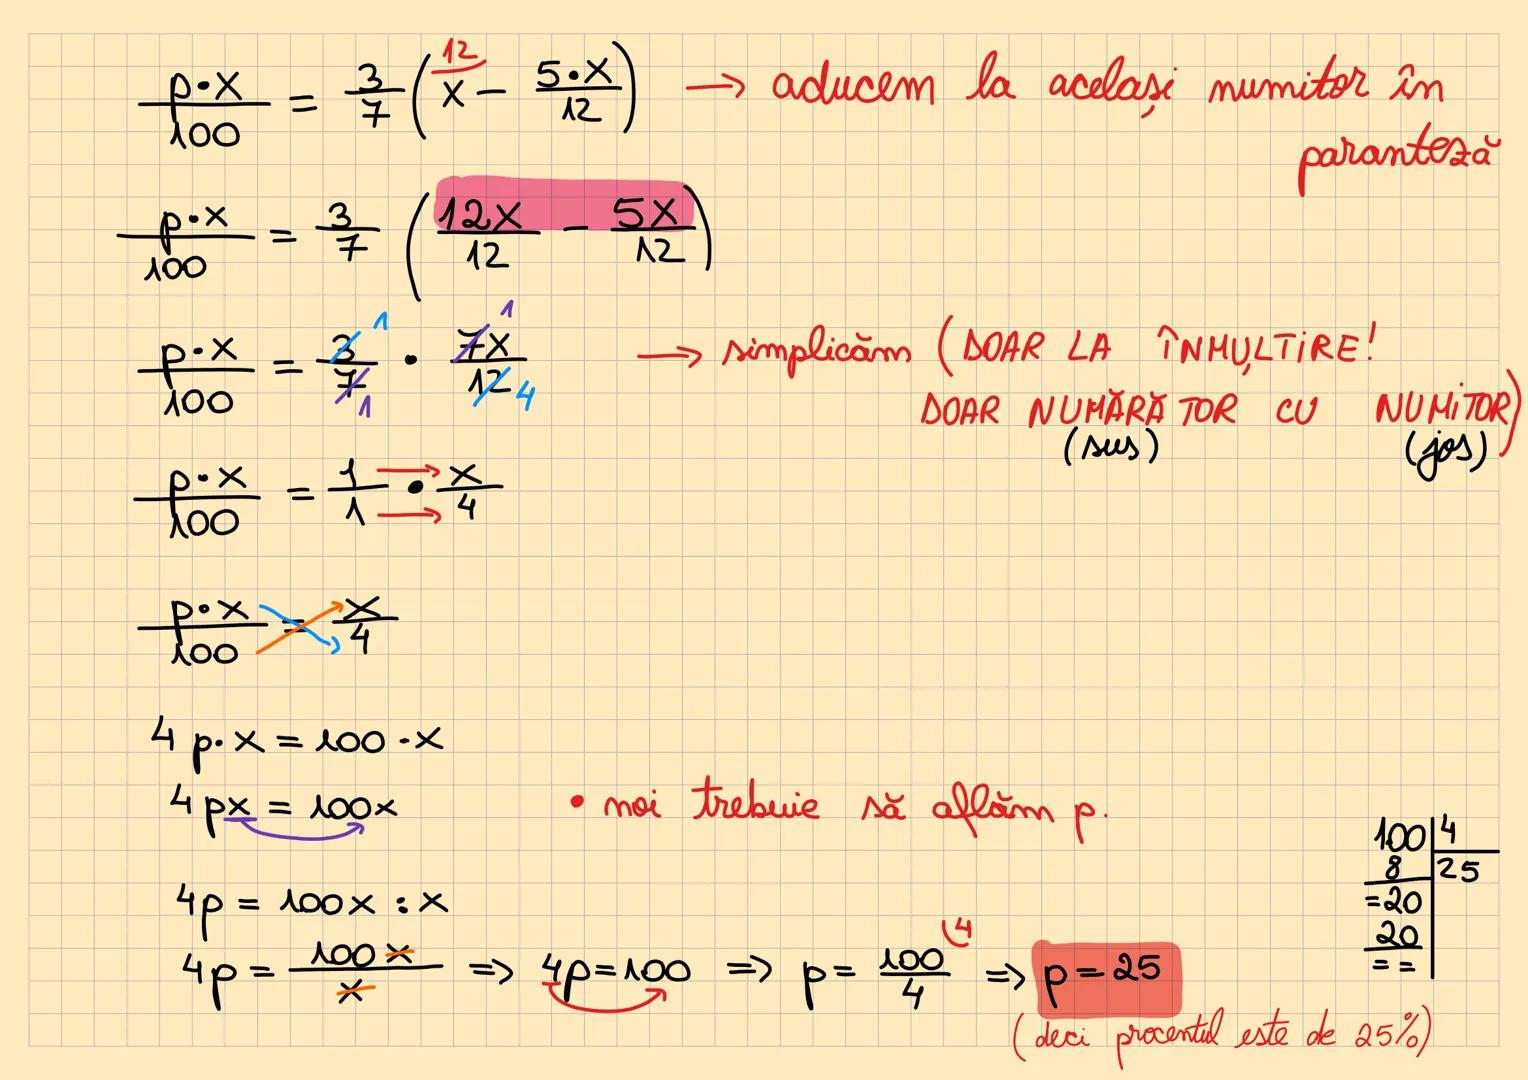 p·x/100 = 3/7 (12/x − 5·x/12) → aducem la același numitor în
paranteză
p·x/100 = 3/7 (12x/12 − 5x/12)
p·x/100 = 3/7 · 7x/12 1 1 1 4 → simplicăm (DOAR LA ÎNMULȚIRE!
DOAR NUMĂRĂTOR CU NUMITOR)
(sus) (jos)
p·x/100 = 1/1 · x/4
p·x/100 = x/4
4 p·x = 100·x
4px = 100x • noi trebuie să aflăm p.
4p = 100x : x
4p = 100x/x => 4p=100 => p= 100/4 (4 => p=25
(deci procentul este de 25%)
100 4
8 25
=20
20
==